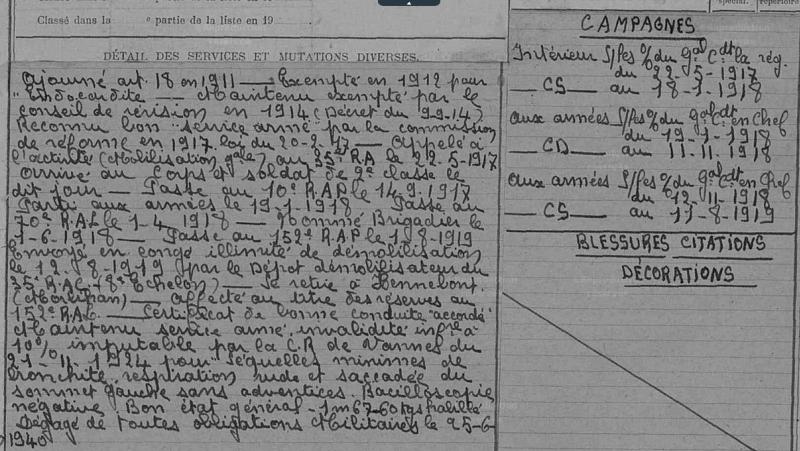 Classé dans la
e partie de la liste en 19
DÉTAIL DES SERVICES ET MUTATIONS DIVERSES.
Ajourné art. 18 en 1911 — Exempté en 1912 pour
"Endocardite — Maintenu exempté par le
conseil de révision en 1914 (Décret du 9.9.14)
Reconnu bon "service armé" par la commission
de réforme en 1917, loi du 20-2-17 — Appelé à
l'activité (Mobilisation gale) au 35e R.A le 22-5-1917
Arrivé au Corps et soldat de 2e classe le
dit jour — Passé au 10e R.A.P le 14-9-1917
Parti aux armées le 19-1-1918 — Passé au
70e R.A.L le 1-4-1918 — Nommé Brigadier le
1-6-1918 — Passé au 152e R.A.P le 1-8-1919
Envoyé en congé illimité de démobilisation
le 12-8-1919 par le Dépôt démobilisateur du
35e R.A.C (8e Echelon) — Se retire à Hennebont.
(Morbihan) — Affecté au titre des réserves au
152e R.A.P. — Certificat de bonne conduite "accordé"
Maintenu service armé, invalidité infre à
10% imputable par la C.R de Vannes du
21-11-1924 pour séquelles minimes de
bronchite, respiration rude et saccadée du
sommet gauche sans adventices. Bacilloscopie
négative. Bon état général - 1m67-60kgs habillé
Dégagé de toutes obligations Militaires le 25-6-
1940
spécial.
répertoire
CAMPAGNES
Intérieur S/les % du gal Cdt la rég.
du 22-5-1917
— CS — au 18-1-1918
aux armées S/les % du gal Cdt en Chef
du 19-1-1918
— CD — au 11.11.1918
aux armées S/les % du gal Cdt en Chef
du 12-11-1918
— CS — au 11-8-1919
BLESSURES CITATIONS
DÉCORATIONS